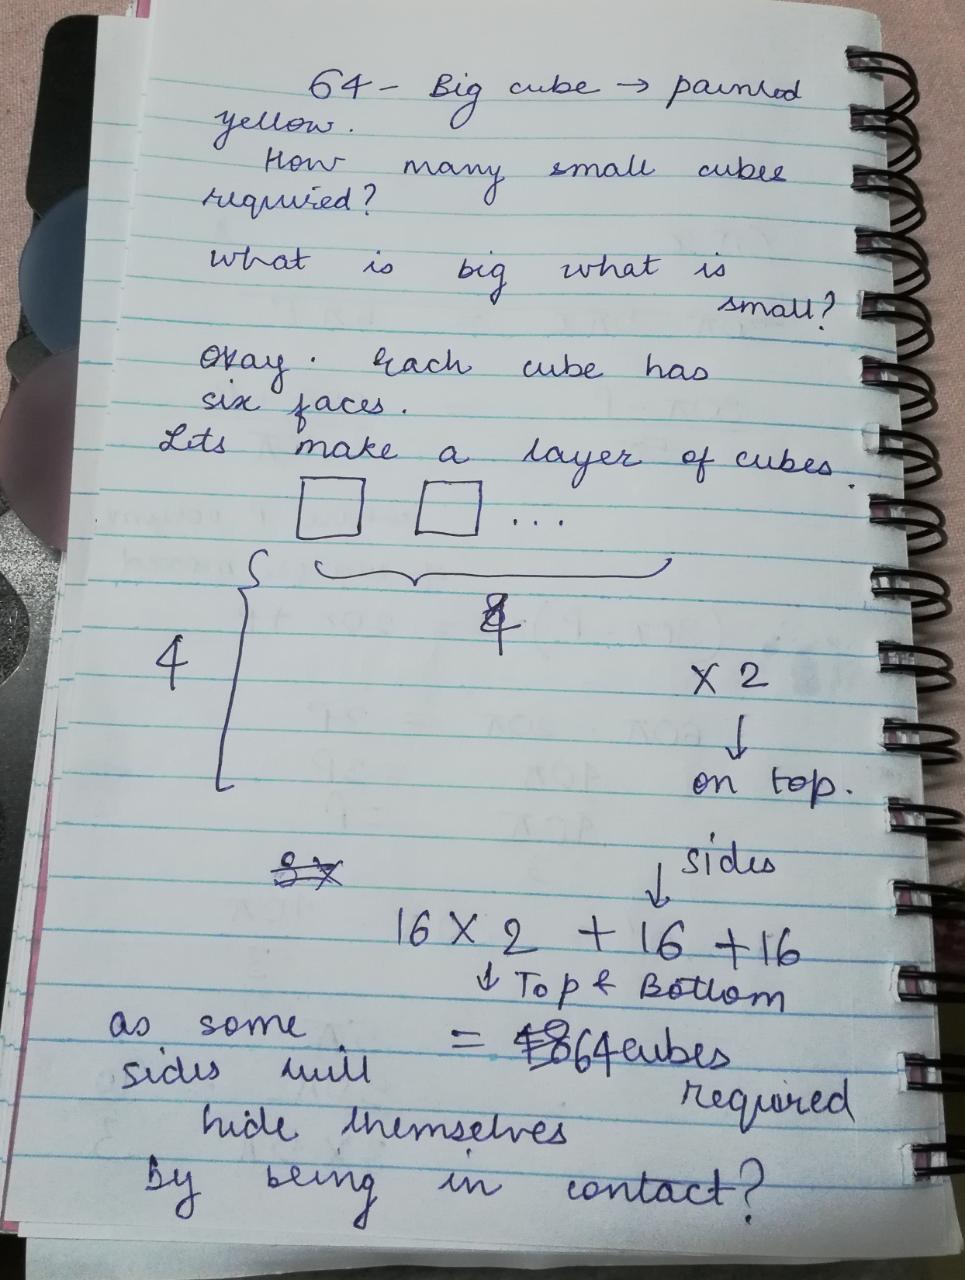 64 - Big cube → painted
yellow.
How many small cubes
required?
what is big what is
small?
Okay. Each cube has
six faces.
Lets make a layer of cubes.
...
4
4
x 2
↓
on top.
↓ sides
16 x 2 + 16 + 16
↓ Top & Bottom
as some = 64 cubes
sides will required
hide themselves
By being in contact?